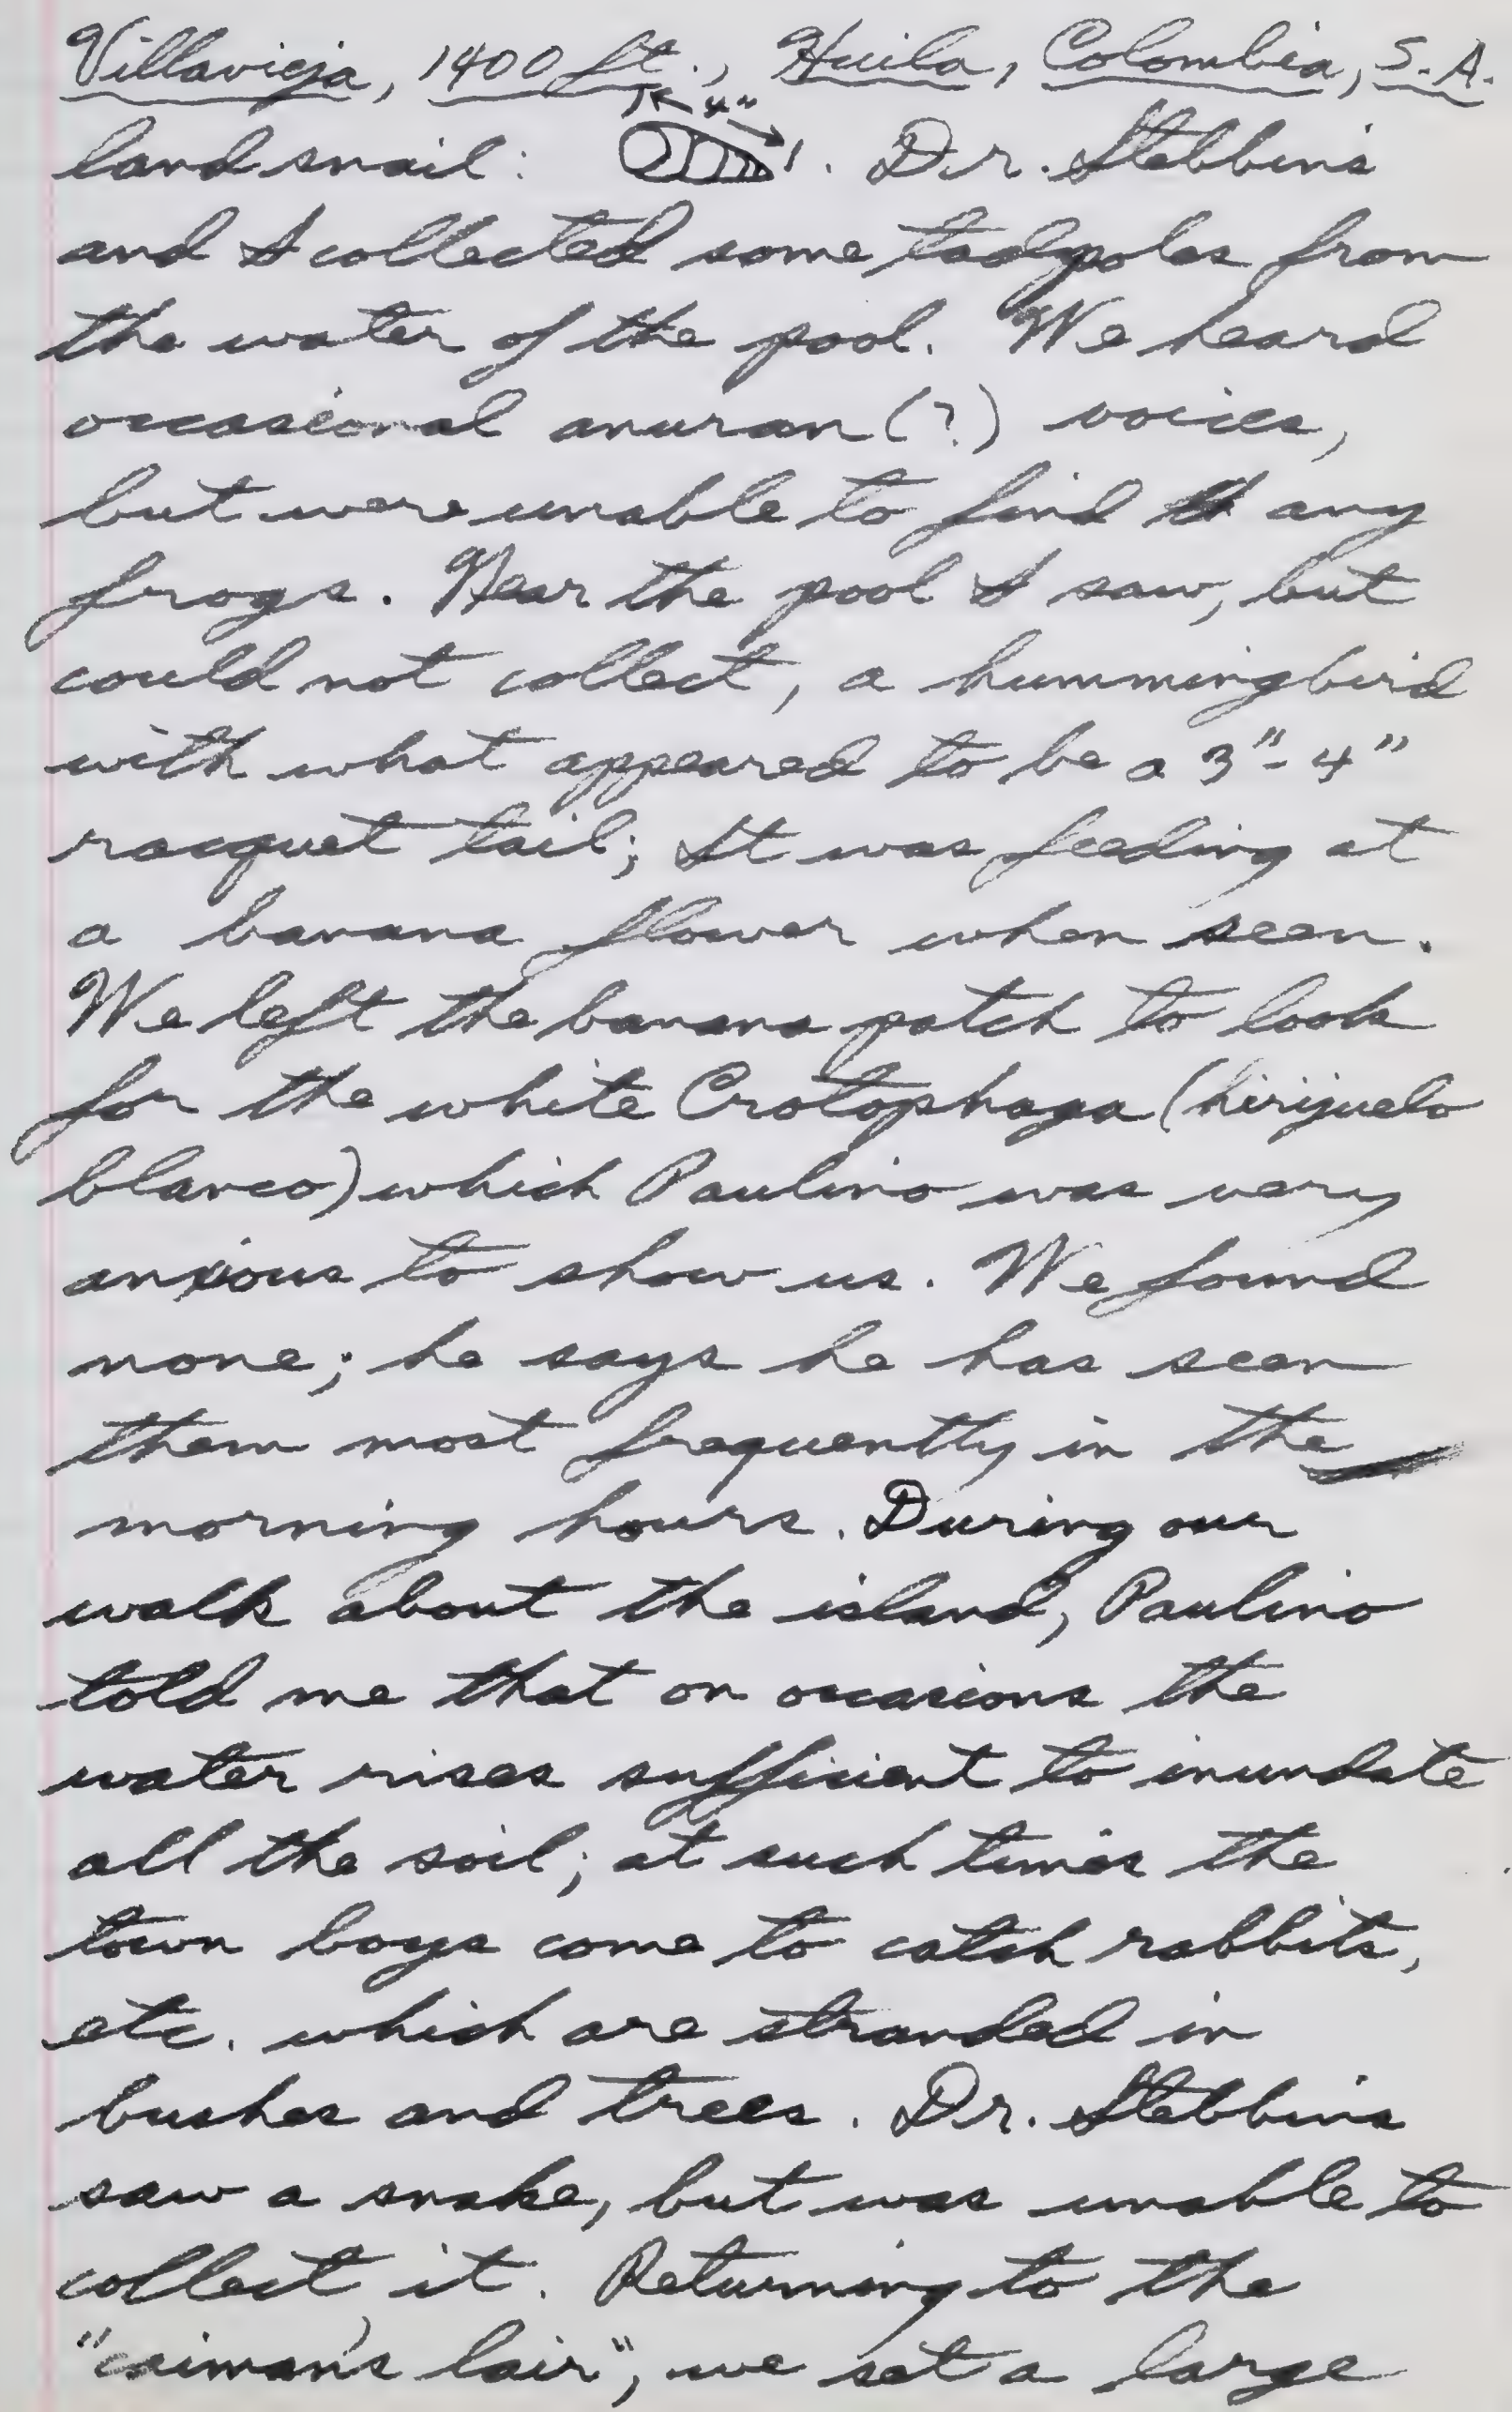 Villavieja, 1400 ft., Huila, Colombia, S.A.
4"
land snail: . Dr. Stebbins
and I collected some tadpoles from
the water of the pool. We heard
occasional anuran (?) voices,
but were unable to find any
frogs. Near the pool I saw, but
could not collect, a hummingbird
with what appeared to be a 3"-4"
racquet tail; It was feeding at
a banana flower when seen.
We left the banana patch to look
for the white Crotophaga (hirijuelo
blanco) which Paulino was very
anxious to show us. We found
none; he says he has seen
them most frequently in the
morning hours. During our
walk about the island, Paulino
told me that on occasions the
water rises sufficient to inundate
all the soil; at such times the
town boys come to catch rabbits,
etc. which are stranded in
bushes and trees. Dr. Stebbins
saw a snake, but was unable to
collect it. Returning to the
"caiman's lair", we set a large